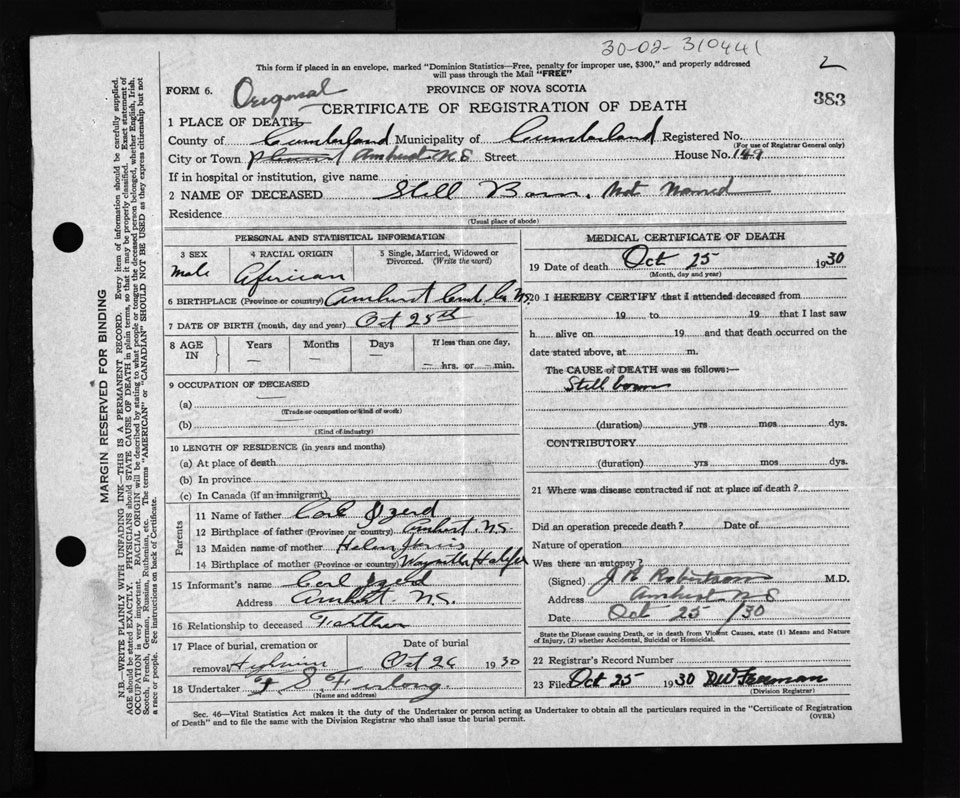 30-02-310441
2
This form if placed in an envelope, marked "Dominion Statistics—Free, penalty for improper use, $300," and properly addressed
will pass through the Mail "FREE"
FORM 6. Original PROVINCE OF NOVA SCOTIA
383
CERTIFICATE OF REGISTRATION OF DEATH
1 PLACE OF DEATH
County of Cumberland Municipality of Cumberland Registered No.
(For use of Registrar General only)
City or Town Amherst N.S. Street House No. 149
If in hospital or institution, give name
2 NAME OF DECEASED Still Born. Not Named
Residence
(Usual place of abode)
PERSONAL AND STATISTICAL INFORMATION
3 SEX 4 RACIAL ORIGIN 5 Single, Married, Widowed or Divorced. (Write the word)
Male African
6 BIRTHPLACE (Province or country) Amherst Cumb. Co. N.S.
7 DATE OF BIRTH (month, day and year) Oct 25th
8 AGE IN Years Months Days If less than one day,
— — — — hrs. or — min.
9 OCCUPATION OF DECEASED
—
(a)
(Trade or occupation or kind of work)
(b)
(Kind of industry)
10 LENGTH OF RESIDENCE (in years and months)
(a) At place of death
(b) In province
(c) In Canada (if an immigrant)
Parents
11 Name of father Carl Izerd
12 Birthplace of father (Province or country) Amherst N.S.
13 Maiden name of mother Helen
14 Birthplace of mother (Province or country) Halifax
15 Informant's name Carl Izerd
Address Amherst N.S.
16 Relationship to deceased
17 Place of burial, cremation or Date of burial
removal Oct 26 1930
18 Undertaker F. S. Furlong.
(Name and address)
MEDICAL CERTIFICATE OF DEATH
19 Date of death Oct 25 1930
(Month, day and year)
20 I HEREBY CERTIFY that I attended deceased from
19 to 19 that I last saw
h alive on 19 and that death occurred on the
date stated above, at m.
The CAUSE of DEATH was as follows:—
Still born
(duration) yrs mos dys.
CONTRIBUTORY
(duration) yrs mos dys.
21 Where was disease contracted if not at place of death?
Did an operation precede death? Date of
Nature of operation
Was there an autopsy?
(Signed) J R Robertson M.D.
Address Amherst N S
Date Oct 25 /30
State the Disease causing Death, or in death from Violent Causes, state (1) Means and Nature
of Injury, (2) whether Accidental, Suicidal or Homicidal.
22 Registrar's Record Number
23 Filed Oct 25 1930 DW Freeman
(Division Registrar)
Sec. 46—Vital Statistics Act makes it the duty of the Undertaker or person acting as Undertaker to obtain all the particulars required in the "Certificate of Registration
of Death" and to file the same with the Division Registrar who shall issue the burial permit.
(OVER)
MARGIN RESERVED FOR BINDING
N.B.—WRITE PLAINLY WITH UNFADING INK—THIS IS A PERMANENT RECORD. Every item of information should be carefully supplied.
AGE should be stated EXACTLY. PHYSICIANS should STATE CAUSE OF DEATH in plain terms, so that it may be properly classified. Exact statement of
OCCUPATION is very important. RACIAL ORIGIN will be described by stating to what people or tongue the deceased person belonged, whether English, Irish,
Scotch, French, German, Russian, Ruthenian, etc. The terms "AMERICAN" or "CANADIAN" SHOULD NOT BE USED as they express citizenship but not
a race or people. See instructions on back of Certificate.